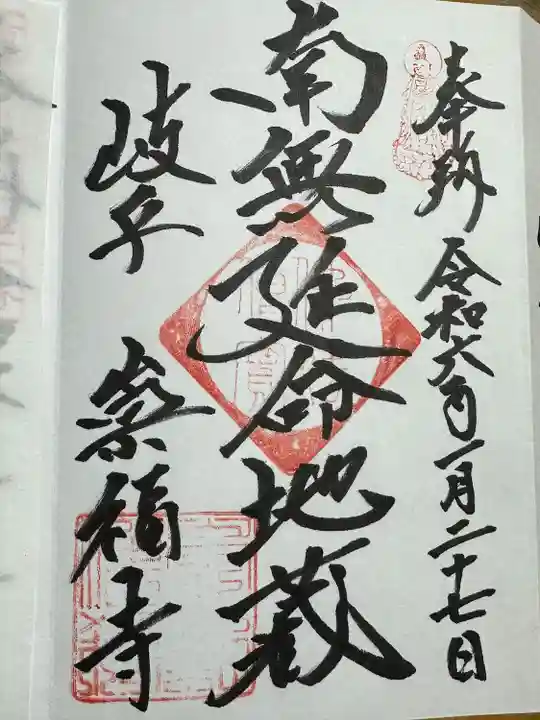 奉納 令和六年一月二十七日
南無延命地蔵
岐阜 崇福寺